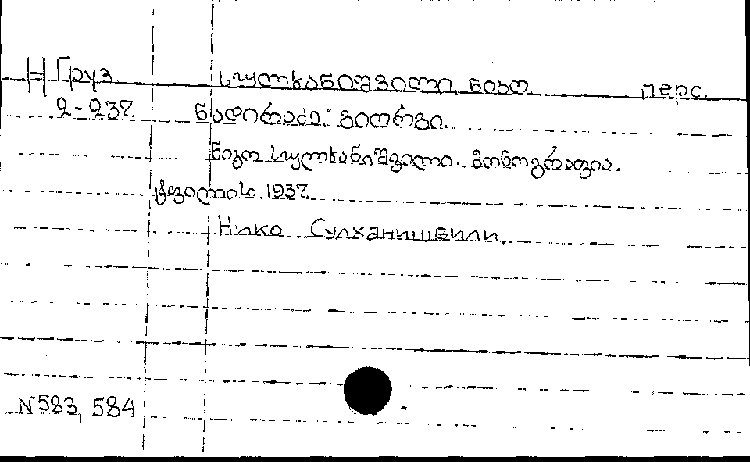 Н Груз. სულხანიშვილი ნიკო перс.
2-237 ნადირაძე, გიორგი.
ნიკო სულხანიშვილი. მონოგრაფია.
ტფილისი. 1937
Нико Сулханишвили.
N 583, 584